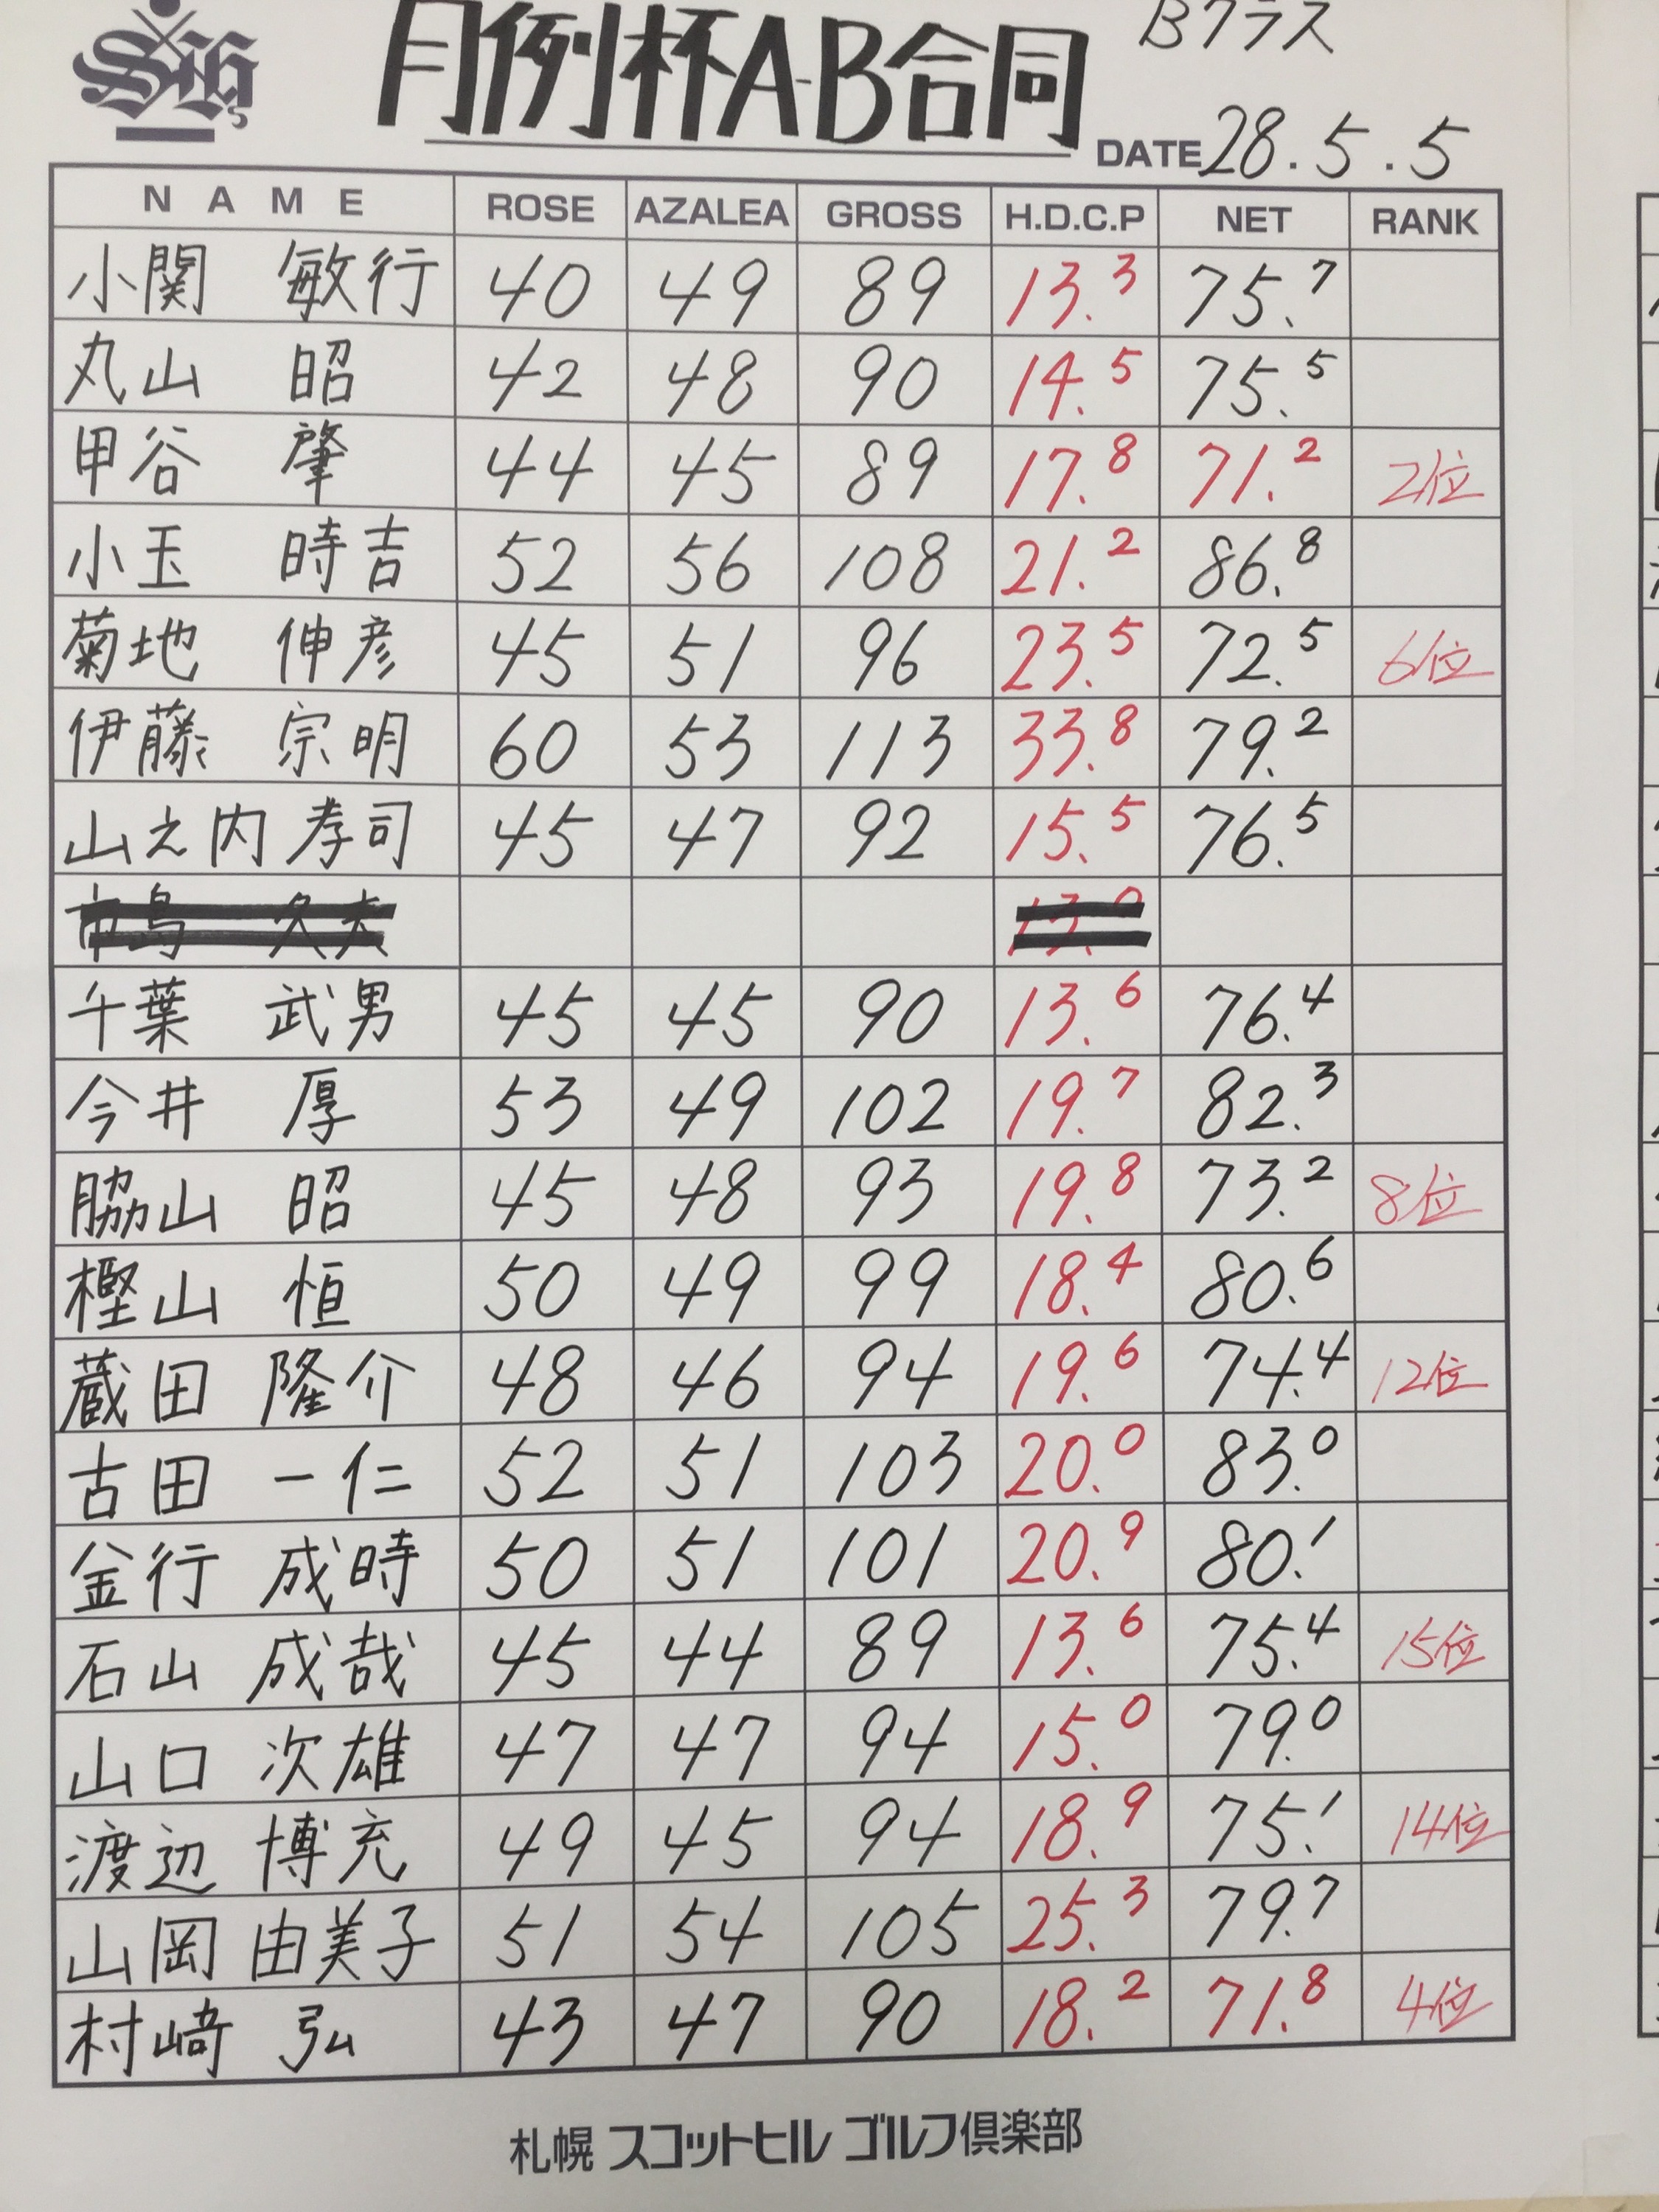 SHG
月例杯A-B合同
Bクラス
DATE 28.5.5
NAME ROSE AZALEA GROSS H.D.C.P NET RANK
小関 敏行 40 49 89 13.3 75.7
丸山 昭 42 48 90 14.5 75.5
甲谷 肇 44 45 89 17.8 71.2 2位
小玉 時吉 52 56 108 21.2 86.8
菊地 伸彦 45 51 96 23.5 72.5 6位
伊藤 宗明 60 53 113 33.8 79.2
山之内 孝司 45 47 92 15.5 76.5
千葉 武男 45 45 90 13.6 76.4
今井 厚 53 49 102 19.7 82.3
脇山 昭 45 48 93 19.8 73.2 8位
樫山 恒 50 49 99 18.4 80.6
蔵田 隆介 48 46 94 19.6 74.4 12位
古田 一仁 52 51 103 20.0 83.0
金行 成時 50 51 101 20.9 80.1
石山 成哉 45 44 89 13.6 75.4 15位
山口 次雄 47 47 94 15.0 79.0
渡辺 博充 49 45 94 18.9 75.1 14位
山岡 由美子 51 54 105 25.3 79.7
村﨑 弘 43 47 90 18.2 71.8 4位
札幌 スコットヒル ゴルフ倶楽部